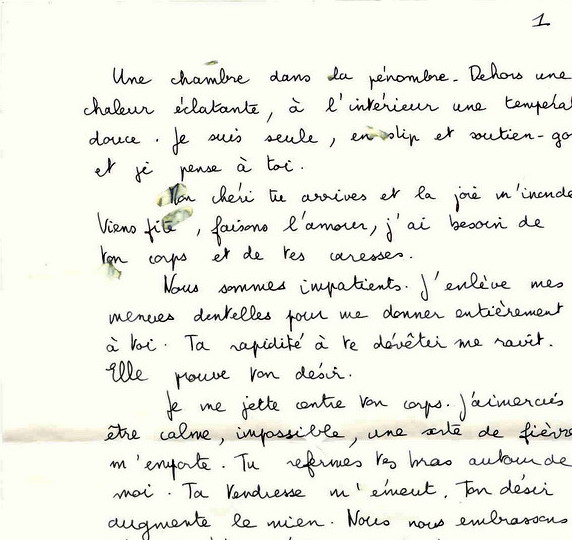 1
Une chambre dans la pénombre. Dehors une
chaleur éclatante, à l'intérieur une tempéra
douce. Je suis seule, en slip et soutien-go
et je pense à toi.
Mon chéri tu arrives et la joie m'inonde
Viens fite, faisons l'amour, j'ai besoin de
ton corps et de tes caresses.
Nous sommes impatients. J'enlève mes
menues dentelles pour me donner entièrement
à toi. Ta rapidité à te dévêtir me ravit.
Elle prouve ton désir.
Je me jette contre ton corps. J'aimerais
être calme, impossible, une sorte de fièvre
m'emporte. Tu refermes tes bras autour de
moi. Ta tendresse m'émeut. Ton désir
augmente le mien. Nous nous embrassons